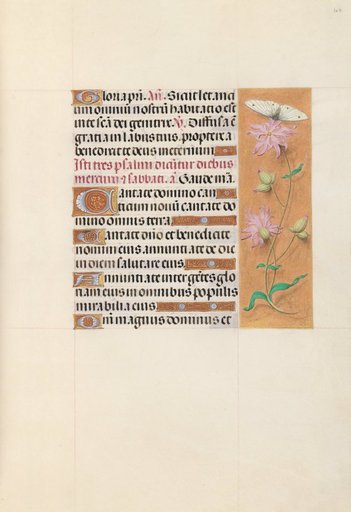 Gloria pri. An. Sicut letanci
um omniũ nostrũ habitacio est
in te scã dei genitrix. V. Diffusa ẽ
gratia in labiis tuis, propterea
benedixit te deus in eternum
Isti tres psalmi dicũtur diebus
mercurii & sabbati. a. Gaude mã.
Cantate domino can
ticum nouũ cantate do
mino omnis terra
Cantate dño et benedicite
nomini eius annunciate de die
in diem salutare eius
Annunciate inter gẽtes glo
riam eius in omnibus populis
mirabilia eius
Qm̃ magnus dominus et